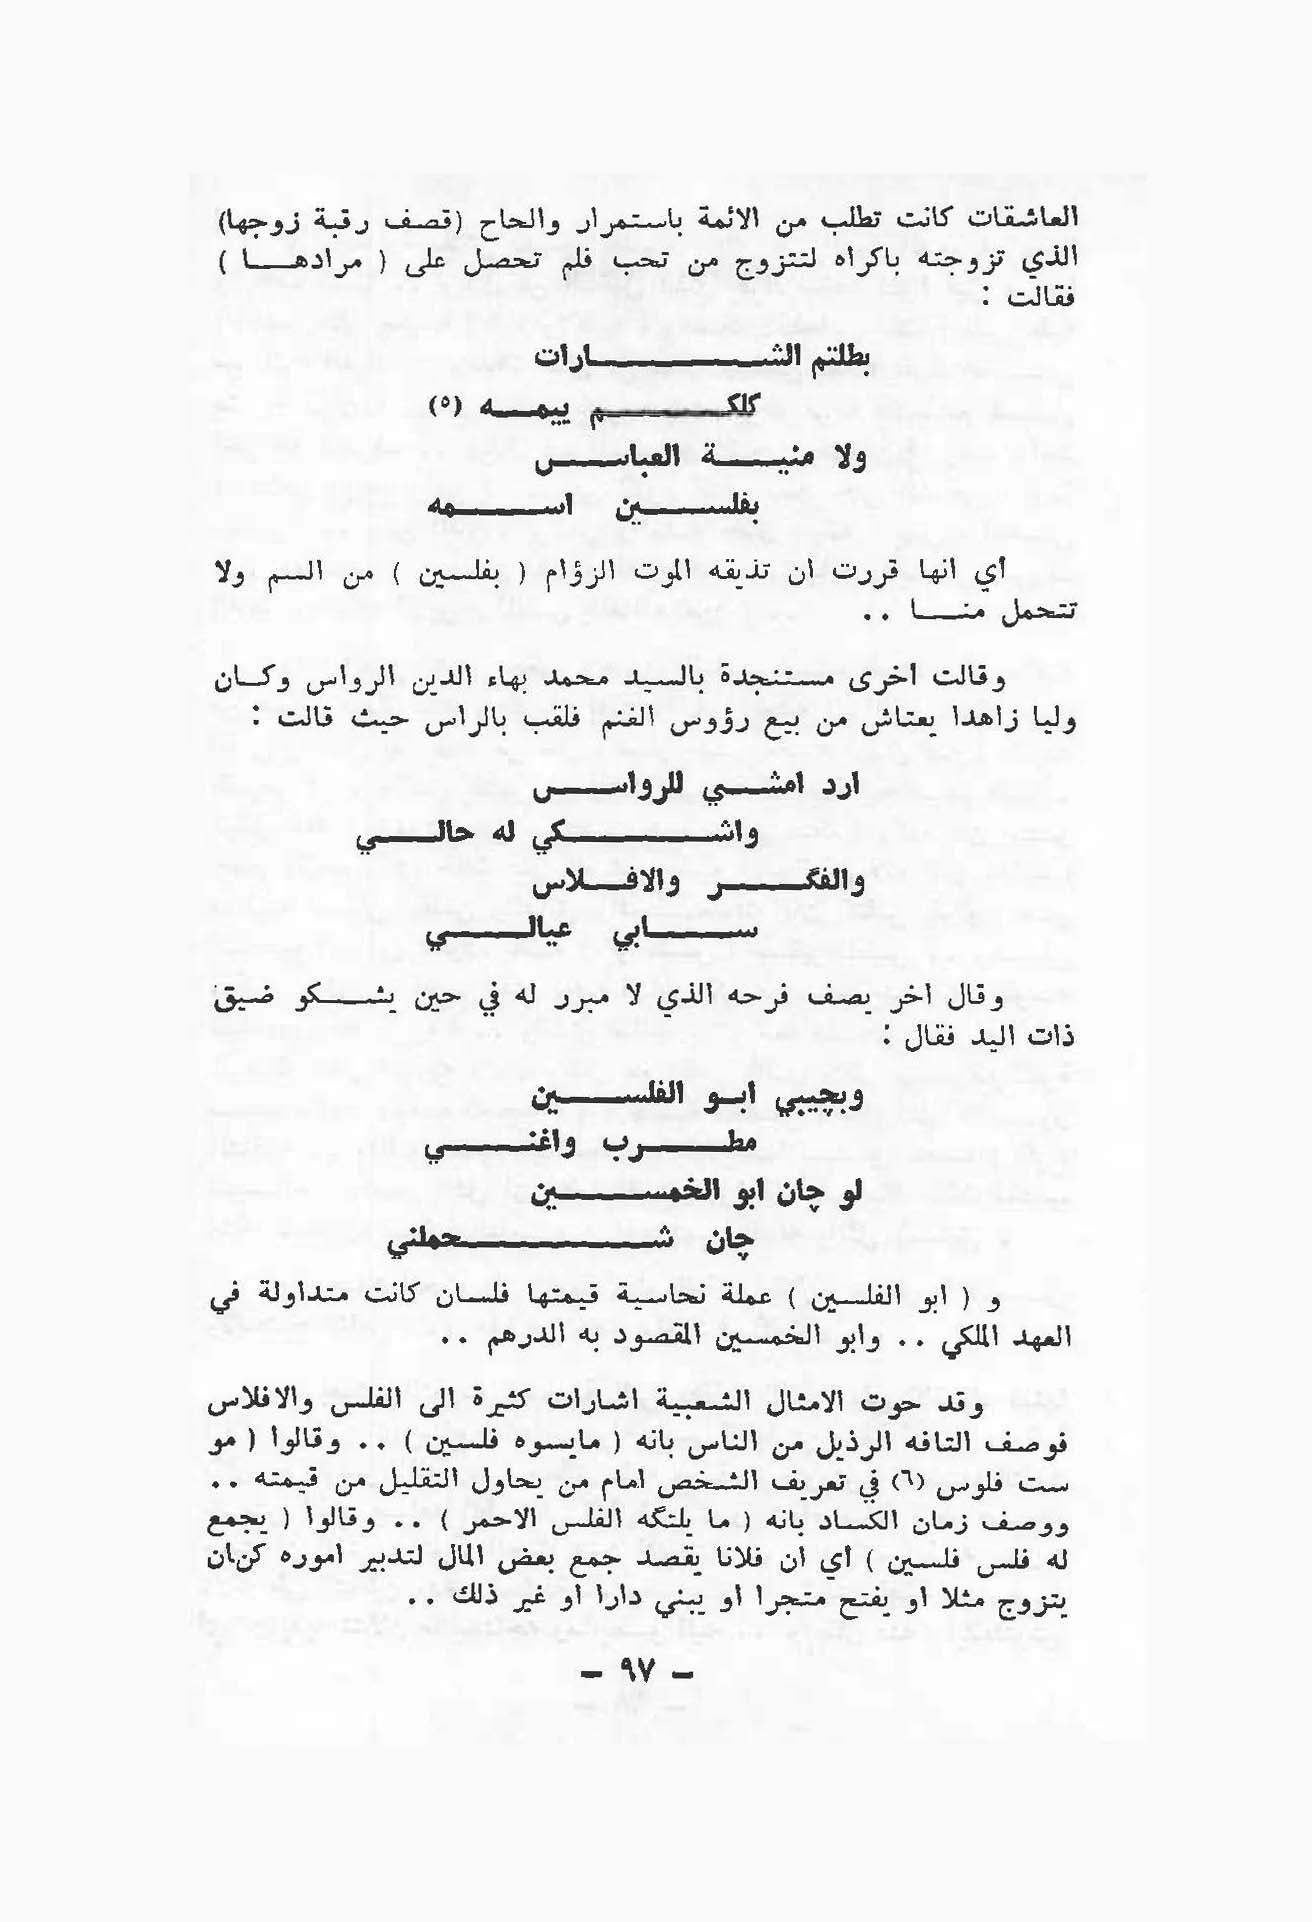 العاشقات كانت تطلب من الائمة باستمرار والحاح (قصف رقبة زوجها)
الذي تزوجته باكراه لتتزوج من تحب فلم تحصل على ( مرادها )
فقالت :
بطلتم الشارات
كلكم ييمه (٥)
ولا منية العباس
بفلسين اسمه
أي انها قررت ان تذيقه الموت الزؤام ( بفلسين ) من السم ولا
تتحمل منا ..
وقالت اخرى مستنجدة بالسيد محمد بهاء الدين الرواس وكان
وليا زاهدا يعتاش من بيع رؤوس الغنم فلقب بالراس حيث قالت :
ارد امشي للرواس
واشكي له حالي
والفگر والافلاس
سابي عيالي
وقال اخر يصف فرحه الذي لا مبرر له في حين يشكو ضيق
ذات اليد فقال :
وبچيبي ابو الفلسين
مطرب واغني
لو چان ابو الخمسين
چان شحملني
و ( ابو الفلسين ) عملة نحاسية قيمتها فلسان كانت متداولة في
العهد الملكي .. وابو الخمسين المقصود به الدرهم ..
وقد حوت الامثال الشعبية اشارات كثيرة الى الفلس والافلاس
فوصف التافه الرذيل من الناس بانه ( مايسوه فلسين ) .. وقالوا ( مو
ست فلوس (٦) في تعريف الشخص امام من يحاول التقليل من قيمته ..
ووصف زمان الكساد بانه ( ما يلتگه الفلس الاحمر ) .. وقالوا ( يجمع
له فلس فلسين ) أي ان فلانا يقصد جمع بعض المال لتدبير اموره كن\ن
يتزوج مثلا او يفتح متجرا او يبني دارا او غير ذلك ..
– ٩٧ –